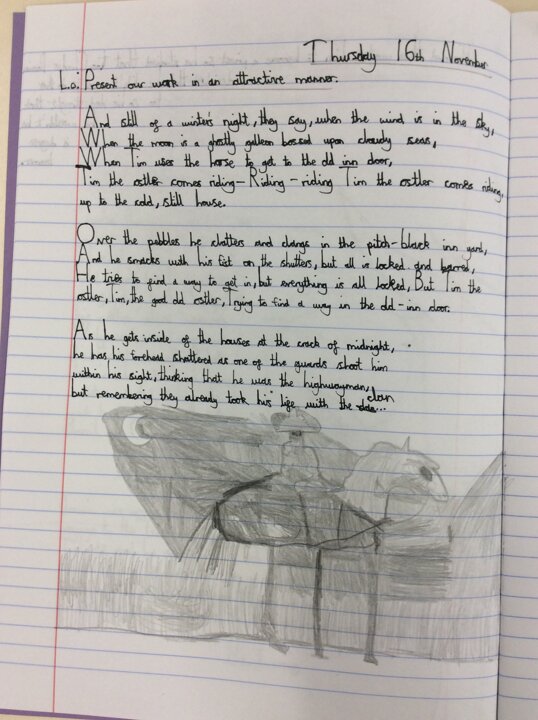 Thursday 16th November
L.o: Present our work in an attractive manner.
And still of a winter's night, they say, when the wind is in the sky,
When the moon is a ghostly galleon bossed upon cloudy seas,
When Tim uses the horse to get to the old inn door,
Tim the ostler comes riding-Riding-riding Tim the ostler comes riding,
up to the cold, still house.
Over the pebbles he clatters and clangs in the pitch-black inn yard,
And he smacks with his fist on the shutters, but all is locked and barred,
He tries to find a way to get in, but everything is all locked, But Tim the
ostler, Tim, the good old ostler, Trying to find a way in the old-inn door.
As he gets inside of the houses at the crack of midnight,
he has his forehead shattered as one of the guards shoot him
within his sight, thinking that he was the highwayman,
but remembering they already took his life with the clan...